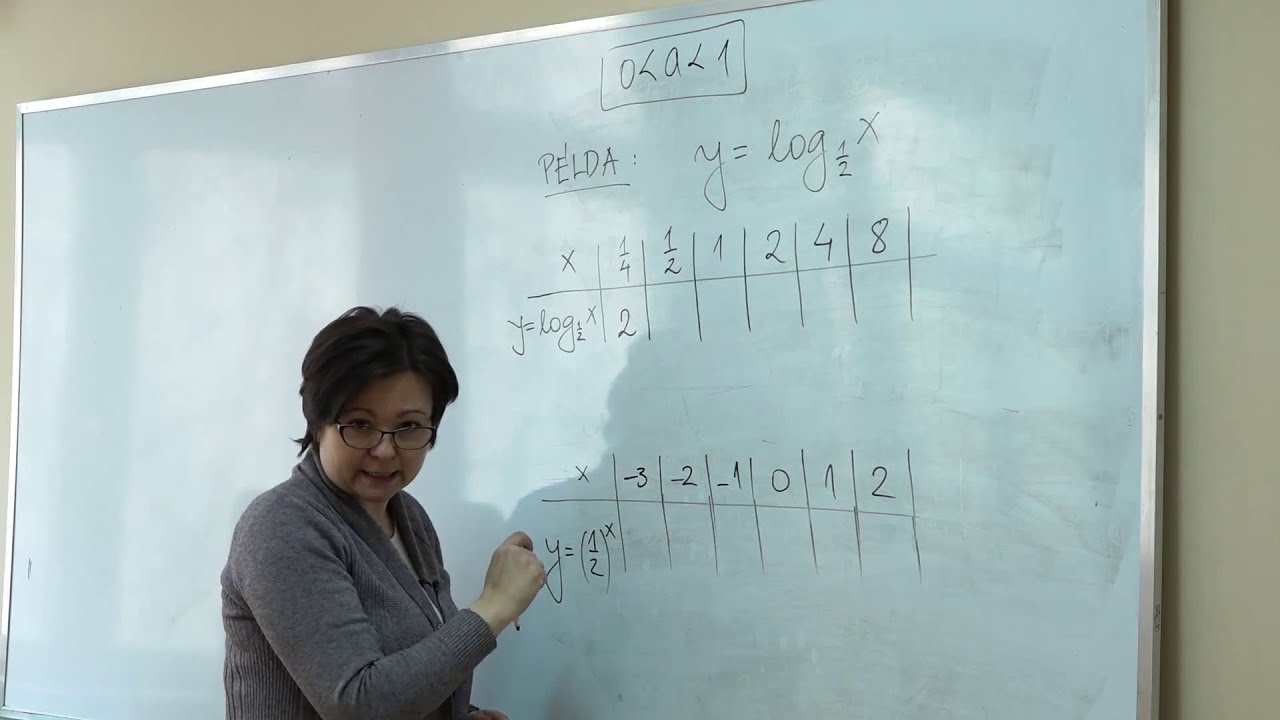 0<a<1
PÉLDA: y = log_{1/2} x
x | 1/4 | 1/2 | 1 | 2 | 4 | 8
y=log_{1/2} x | 2
x | -3 | -2 | -1 | 0 | 1 | 2
y=(1/2)^x